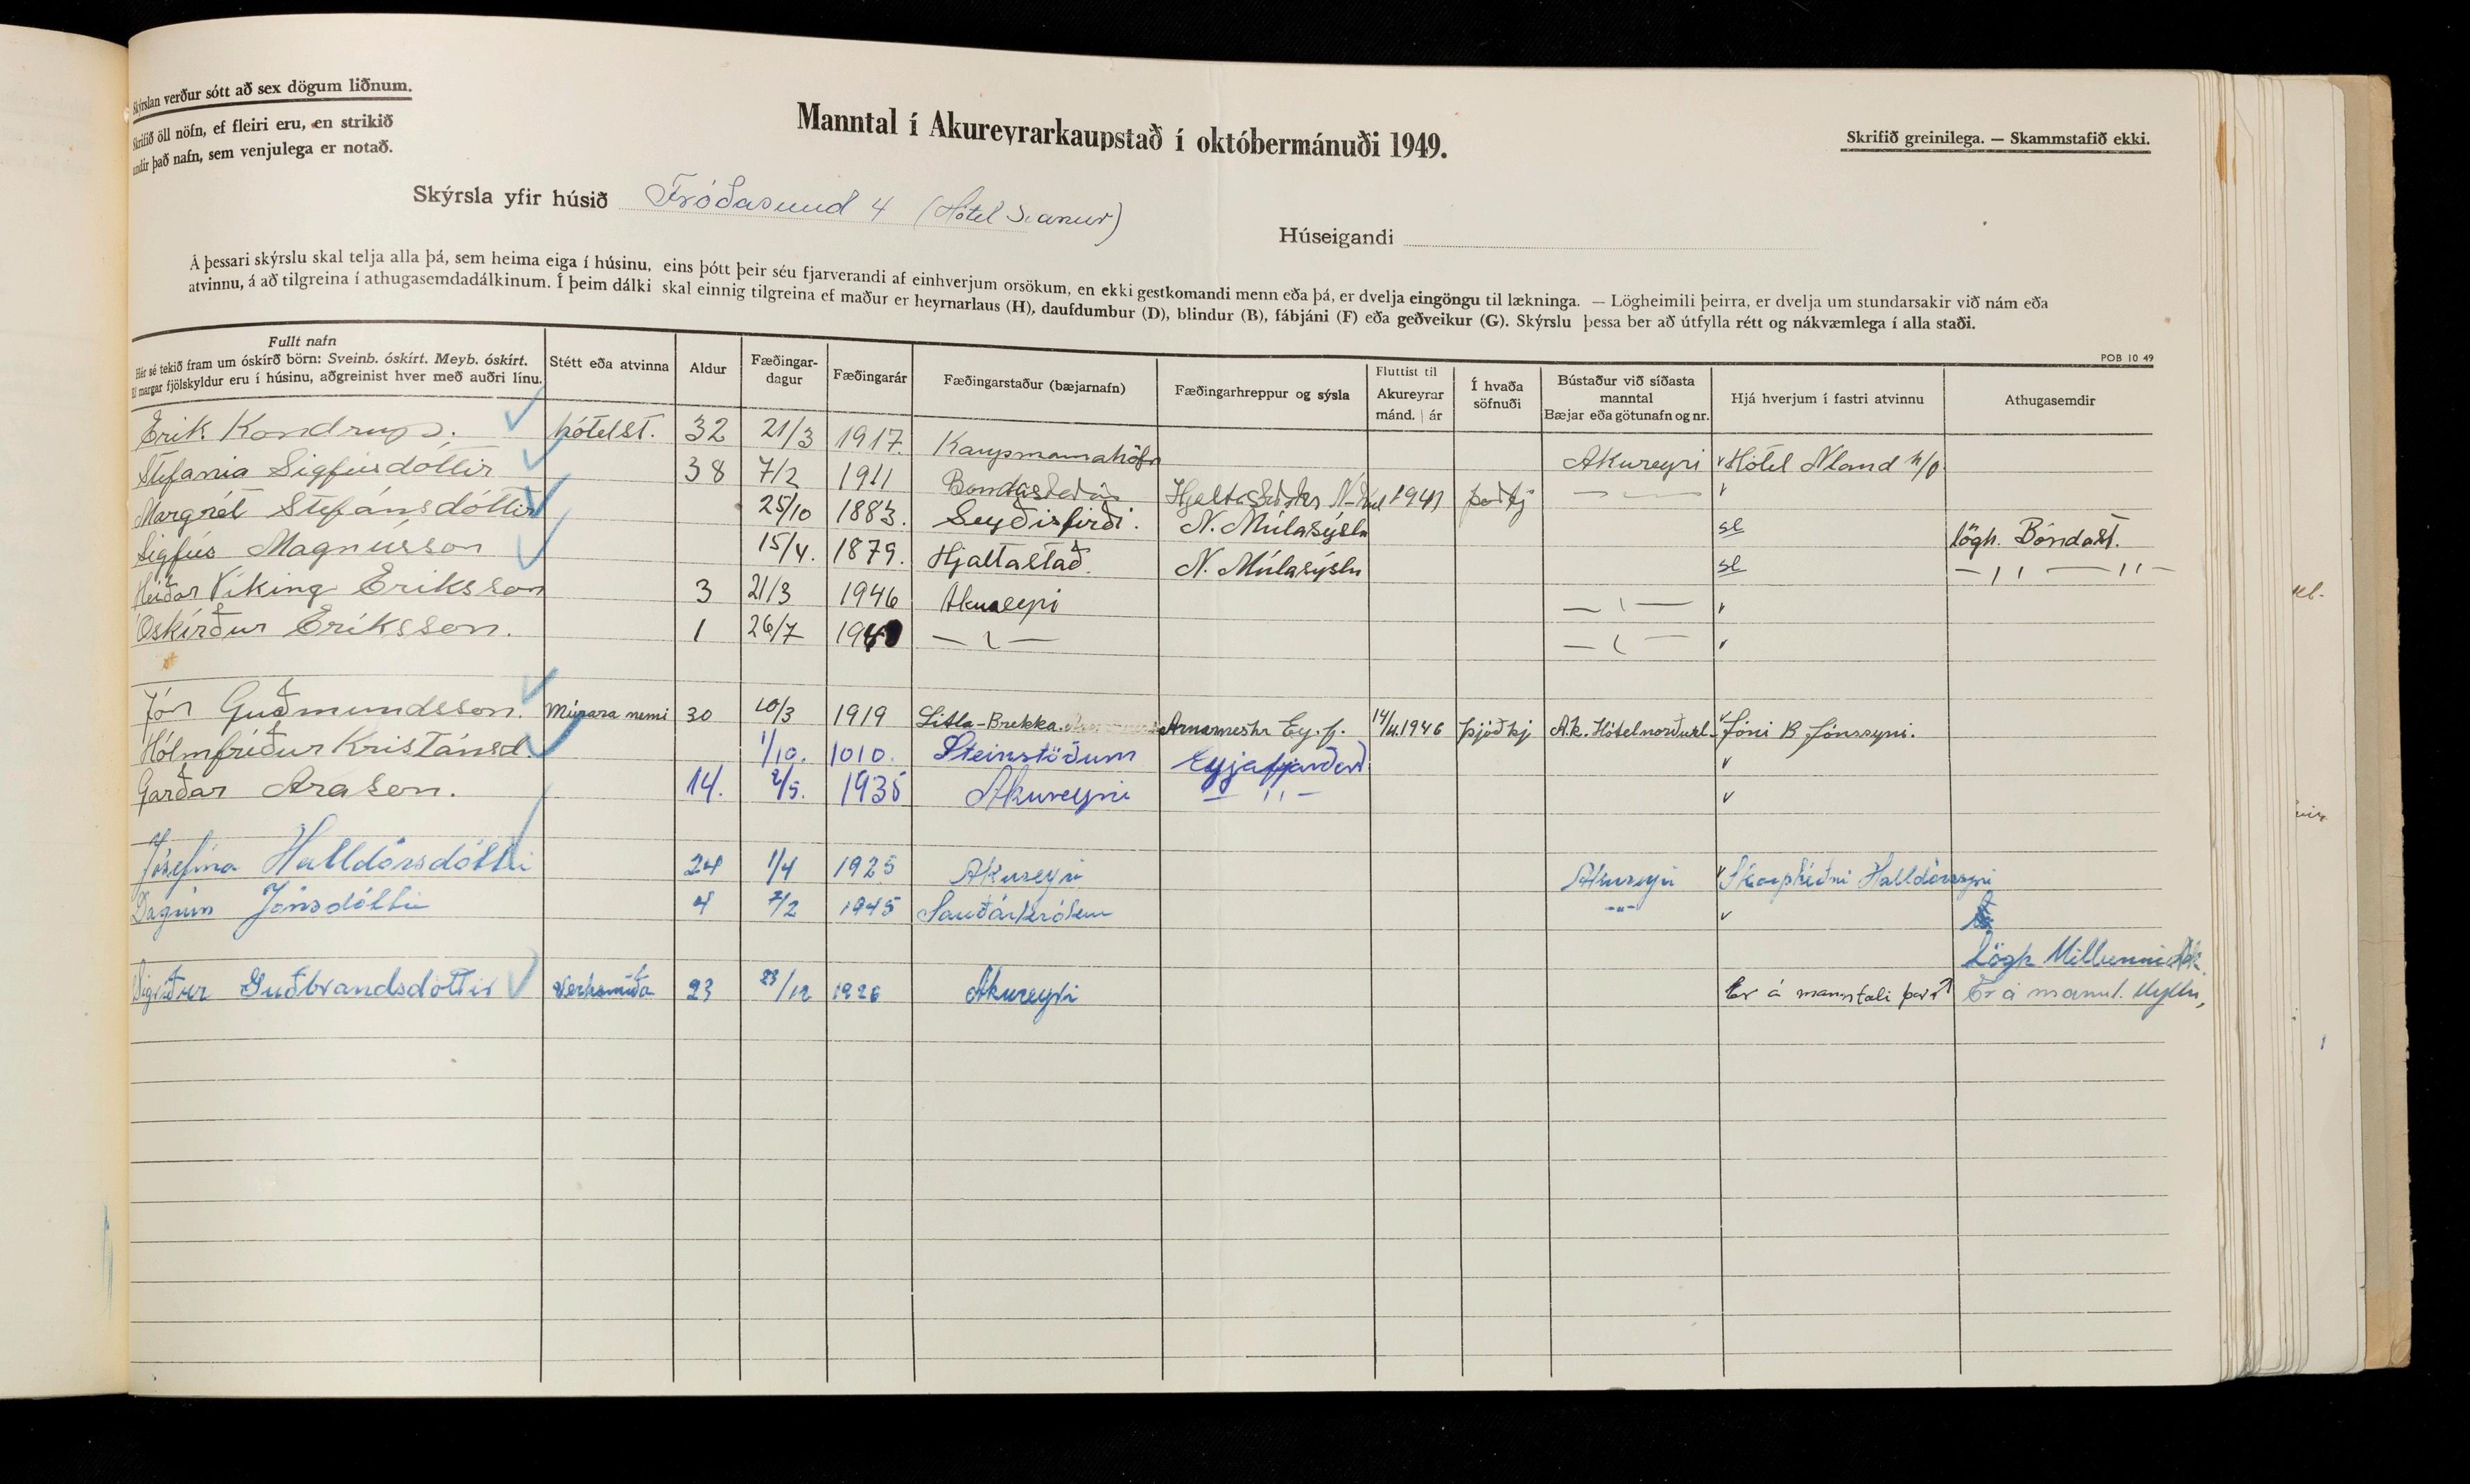 Skýrslan verður sótt að sex dögum liðnum.
Skrifið öll nöfn, ef fleiri eru, en strikið
undir það nafn, sem venjulega er notað.
Manntal í Akureyrarkaupstað í októbermánuði 1949.
Skrifið greinilega. — Skammstafið ekki.
Skýrsla yfir húsið Fróðasund 4 (Hótel Svanur)
Húseigandi
Á þessari skýrslu skal telja alla þá, sem heima eiga í húsinu, eins þótt þeir séu fjarverandi af einhverjum orsökum, en ekki gestkomandi menn eða þá, er dvelja eingöngu til lækninga. — Lögheimili þeirra, er dvelja um stundarsakir við nám eða
atvinnu, á að tilgreina í athugasemdadálkinum. Í þeim dálki skal einnig tilgreina ef maður er heyrnarlaus (H), daufdumbur (D), blindur (B), fábjáni (F) eða geðveikur (G). Skýrslu þessa ber að útfylla rétt og nákvæmlega í alla staði.
POB 10 49
Fullt nafn
Hér sé tekið fram um óskírð börn: Sveinb. óskírt. Meyb. óskírt.
Ef margar fjölskyldur eru í húsinu, aðgreinist hver með auðri línu.
Stétt eða atvinna
Aldur
Fæðingar-
dagur
Fæðingarár
Fæðingarstaður (bæjarnafn)
Fæðingarhreppur og sýsla
Fluttist til
Akureyrar
mánd. | ár
Í hvaða
söfnuði
Bústaður við síðasta
manntal
Bæjar eða götunafn og nr.
Hjá hverjum í fastri atvinnu
Athugasemdir
Erik Kondrup. hótelst. 32 21/3 1917. Kaupmannahöfn Akureyri Hótel
Stefania Sigfúsdóttir 38 7/2 1911 1941
Margrét Stefánsdóttir 25/10 1883. Seyðisfirði. N. Múlasýslu sl lögh. Bóndast.
Sigfús Magnússon 15/4. 1879. Hjaltastað. N. Múlasýslu sl — ,, — ,, —
Heiðar Víking Eriksson 3 21/3 1946 Akureyri
Óskírður Eriksson. 1 26/7
Jón Guðmundsson. Múrara nemi 30 10/3 1919 Litla-Brekka. Arnarneshr Eyf. 14/11.1946 þjóðkj A.k. Hótel norðurl. Jóni B. Jónssyni.
Hólmfríður Kristánsd. 1/10. 1010. Steinstöðum
Garðar Arason. 14. 2/5. 1935 Akureyri — ,, —
Jósefína Halldórsdóttir 24 1/4 1925 Akureyri Akureyri Skarphéðni Halldórssyni
Dagrún Jónsdóttir 4 7/2 1945 Sauðárkrókur -"-
Lögh
Sigríður Guðbrandsdóttir Verksmiðja 23 23/12 1926 Akureyri Er á manntali þar? Er á mannt.